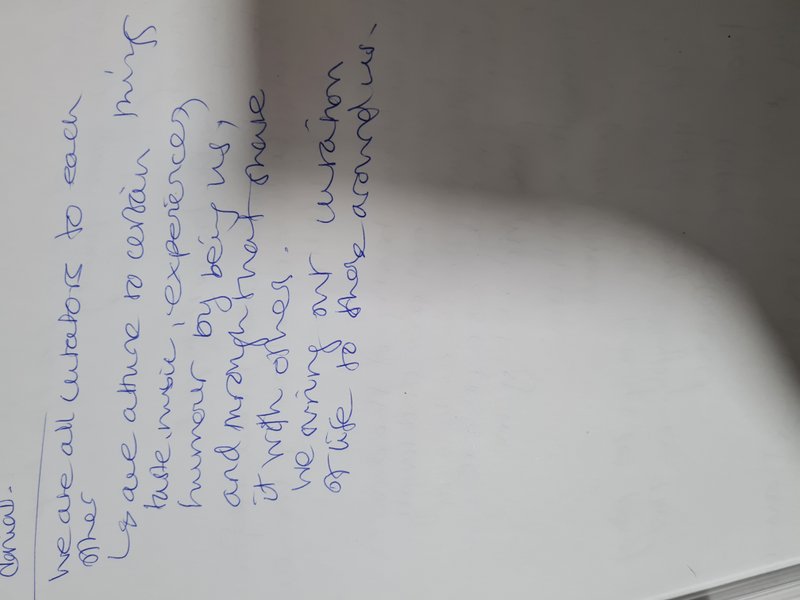 denial.
We are all curators to each
other
↳ are attune to certain things
taste, music, experiences,
humour by being us,
and through that share
it with others.
We bring our curation
of life to those around us.